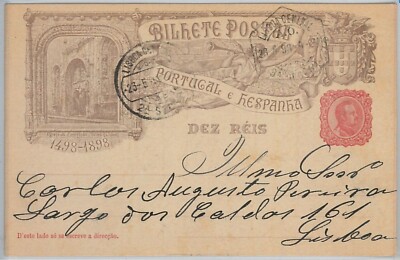 BILHETE POSTAL
PORTUGAL E HESPANHA
DEZ RÉIS
1498-1898
Illmo Snr
Carlos Augusto Pereira
Largo dos Caldas 161
Lisboa
D'este lado só se escreve a direcção.